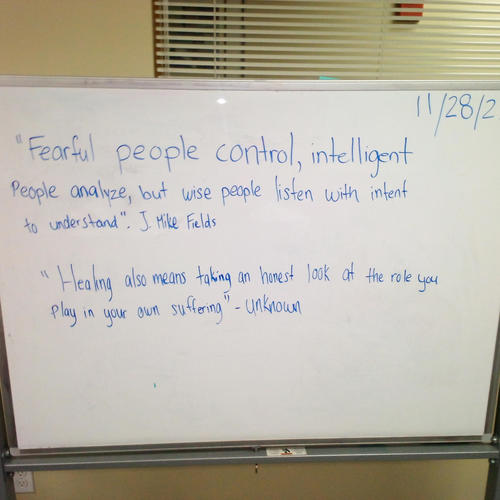 11/28/2
"Fearful people control, intelligent
People analyze, but wise people listen with intent
to understand". J. Mike Fields
"Healing also means taking an honest look at the role you
play in your own suffering" - Unknown